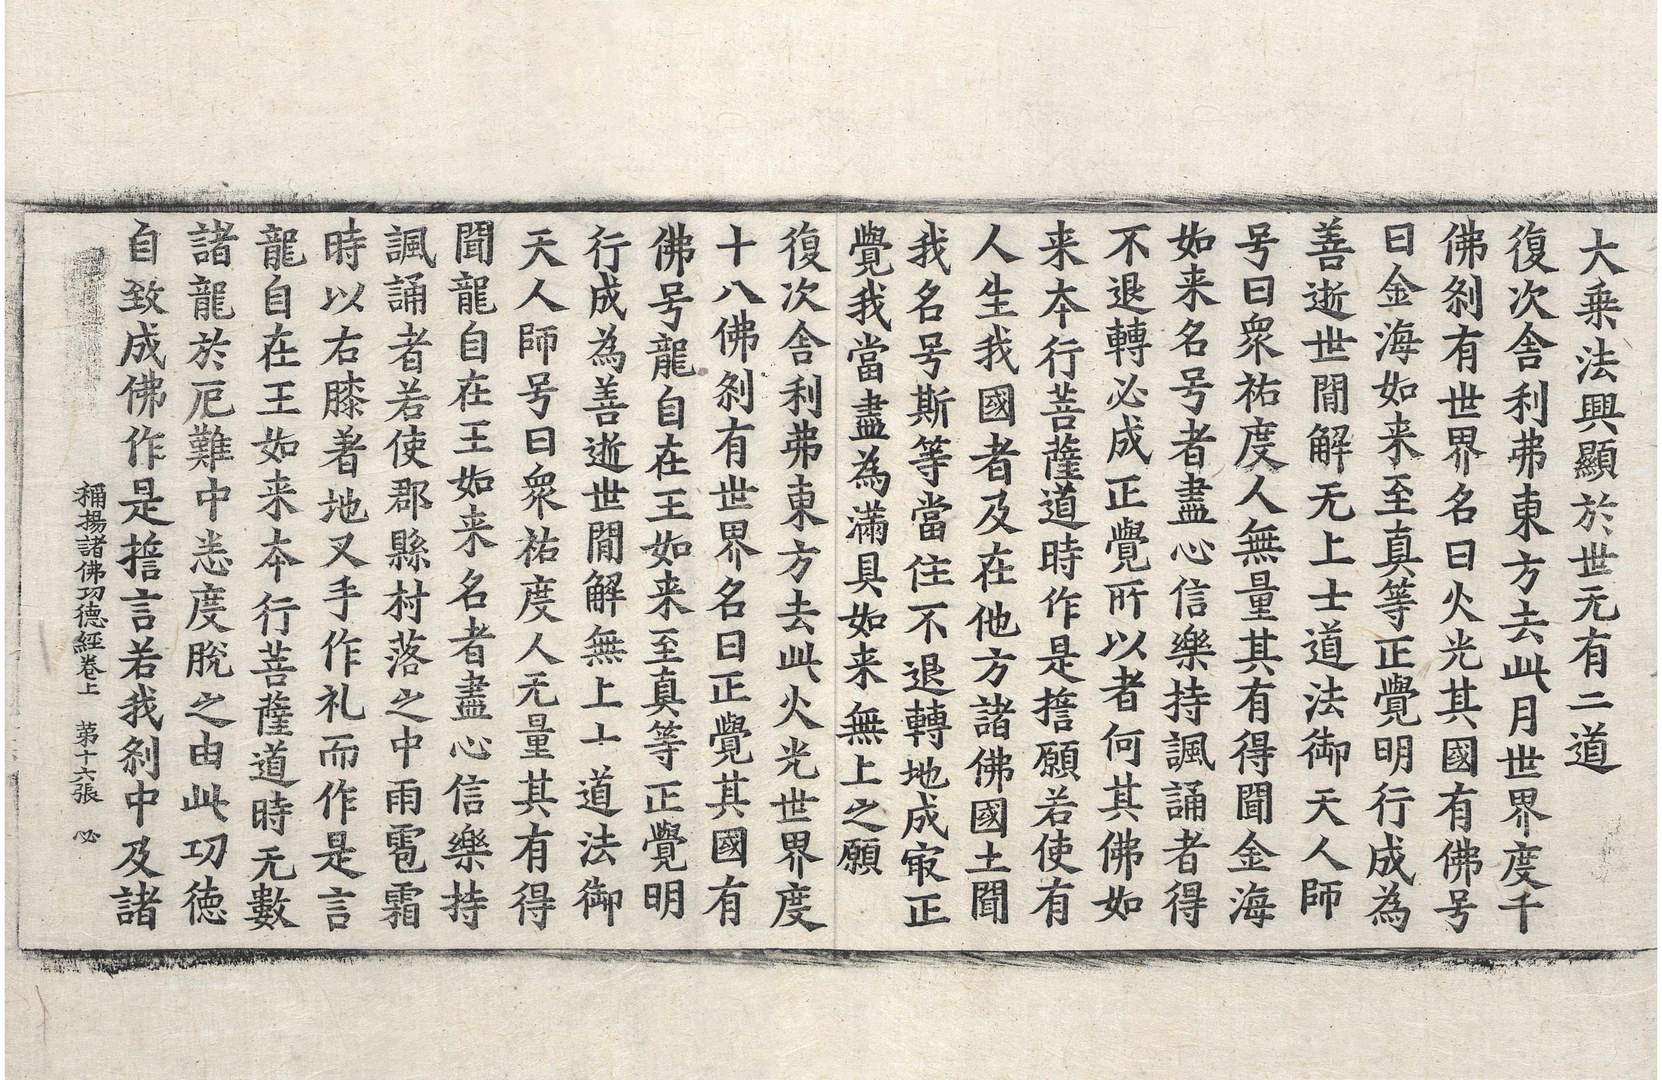 大乗法興顯於世无有二道
復次舎利弗東方去此月世界度千
佛刹有世界名曰火光其國有佛号
曰金海如来至真等正覺明行成為
善逝世閒解无上士道法御天人師
号曰衆祐度人無量其有得聞金海
如来名号者盡心信樂持諷誦者得
不退轉必成正覺所以者何其佛如
来夲行菩薩道時作是誓願若使有
人生我國者及在他方諸佛國土聞
我名号斯等當住不退轉地成㝡正
覺我當盡為滿具如来無上之願
復次舎利弗東方去此火光世界度
十八佛刹有世界名曰正覺其國有
佛号龍自在王如来至真等正覺明
行成為善逝世閒解無上士道法御
天人師号曰衆祐度人无量其有得
聞龍自在王如来名者盡心信樂持
諷誦者若使郡縣村落之中雨雹霜
時以右膝著地叉手作礼而作是言
龍自在王如来夲行菩薩道時无數
諸龍於厄難中悉度脫之由此功德
自致成佛作是誓言若我刹中及諸
稱揚諸佛功德經卷上 第十六張 必